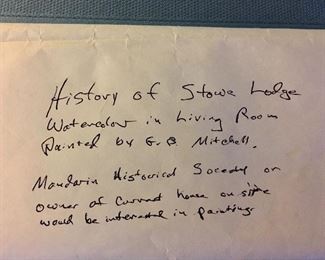 History of Stowe Lodge
Watercolor in Living Room
Painted by G.B. Mitchell.
Mandarin Historical Society or
owner of current house on site
would be interested in paintings